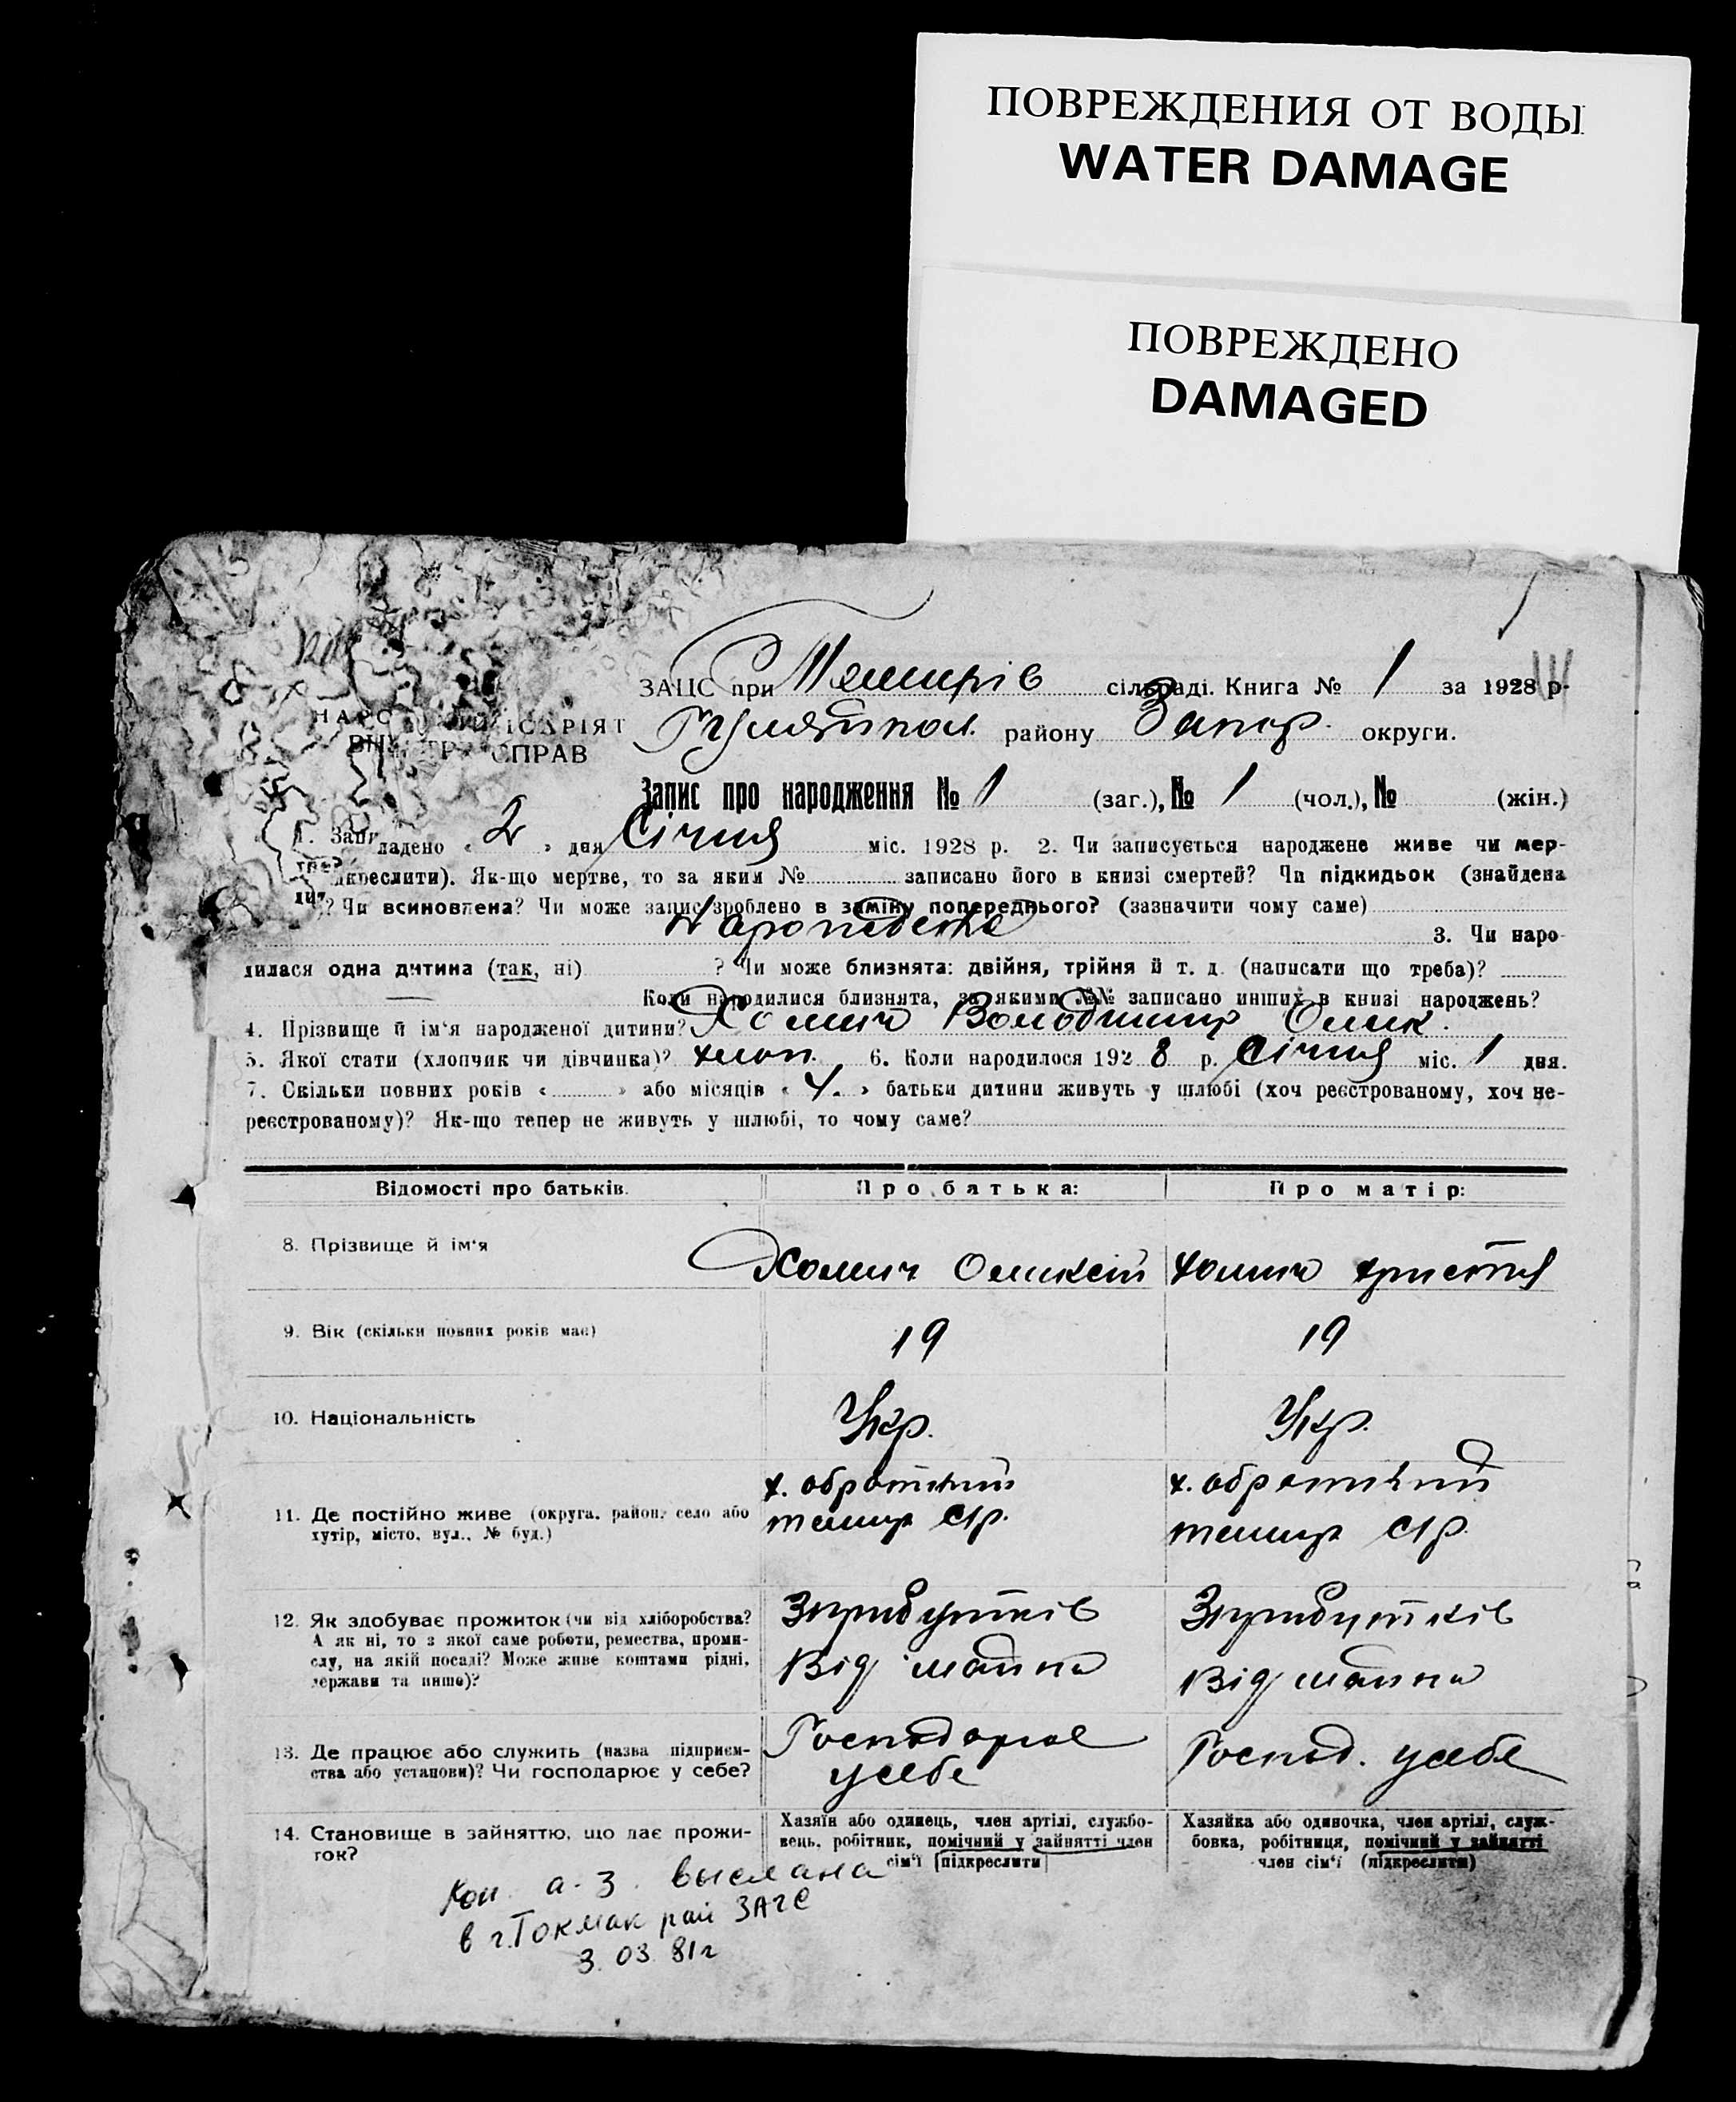 ПОВРЕЖДЕНИЯ ОТ ВОДЫ
WATER DAMAGE
ПОВРЕЖДЕНО
DAMAGED
ЗАЦС при Темирів сільраді. Книга № 1 за 1928 р.
Гуляйпол. району Запор. округи.
СПРАВ
Запис про народження № 1 (заг.), № 1 (чол.), № (жін.)
1. ладено « 2 » дня Січня міс. 1928 р. 2. Чи записується народжене живе чи мер-
дкреслити). Як-що мертве, то за яким № записано його в книзі смертей? Чи підкидьок (знайдена
? Чи всиновлена? Чи може запис зроблено в заміну попереднього? (зазначити чому саме)
3. Чи наро-
дилася одна дитина (так, ні) ? Чи може близнята: двійня, трійня й т. д. (написати що треба)?
Коли народилися близнята, за якими №№ записано инших в книзі народжень?
4. Прізвище й ім'я народженої дитини? Хомич Володимир Олик.
5. Якої стати (хлопчик чи дівчинка)? хлоп. 6. Коли народилося 1928 р. Січня міс. 1 дня.
7. Скільки повних років « » або місяців « 4. » батьки дитини живуть у шлюбі (хоч реєстрованому, хоч не-
реєстрованому)? Як-що тепер не живуть у шлюбі, то чому саме?
Відомості про батьків. Про батька: Про матір:
8. Прізвище й ім'я Хомич Оликсій Хомич Христя
9. Вік (скільки повних років має) 19 19
10. Національність Укр. Укр.
11. Де постійно живе (округа, район, село або
хутір, місто, вул., № буд.)
х. обратний х. обратний
темир с/р. темир с/р.
12. Як здобуває прожиток (чи від хліборобства?
А як ні, то з якої саме роботи, ремества, проми-
слу, на якій посаді? Може живе коштами рідні,
держави та инше)?
Зприбутків Зприбутків
Від майна Від майна
13. Де працює або служить (назва підприєм-
ства або установи)? Чи господарює у себе?
Господарює Господ. усебе
усебе
14. Становище в зайняттю, що дає прожи-
ток?
Хазяїн або одинець, член артілі, службо-
вець, робітник, помічний у зайнятті член
сім'ї (підкреслити)
Хазяйка або одиночка, член артілі, служ-
бовка, робітниця, помічний у зайнятті
член сім'ї (підкреслити)
Коп. а. з. выслана
в г. Токмак рай ЗАГС
3. 03. 81г